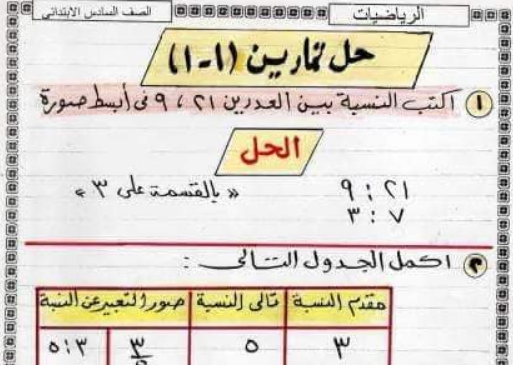 الرياضيات
الصف السادس الابتدائى
حل تمارين (١-١)
١ اكتب النسبة بين العددين ٢١ ، ٩ فى أبسط صورة
الحل
٢١ : ٩ « بالقسمة على ٣ »
٧ : ٣
٢ اكمل الجدول التالى :
مقدم النسبة تالى النسبة صور التعبير عن النسبة
٣ ٥ ٣/٥ ٣ : ٥